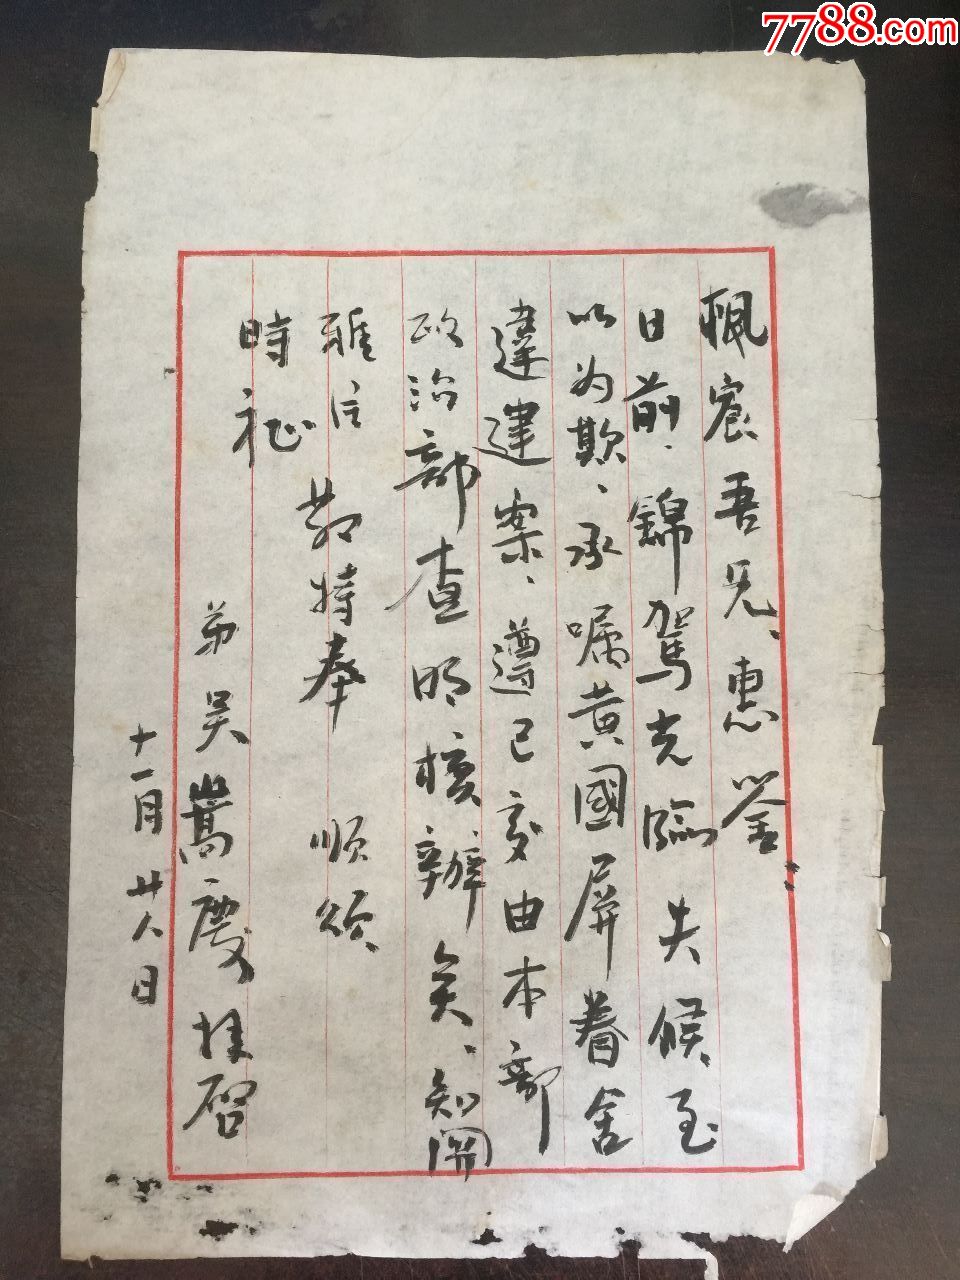 7788.com
楓宸吾兄、惠鉴：
日前、錦駕克臨失候至
以为歉、承嘱黄國屏眷舍
違建案、遵已交由本部
政治部查明核辦矣、知関
雅注 敬特奉 順頌
時祉
弟吴嵩慶拜啓
十一月廿八日